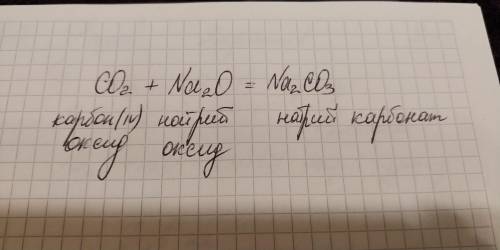 CO₂ + Na₂O = Na₂CO₃
карбон(IV) натрий натрий карбонат
оксид оксид